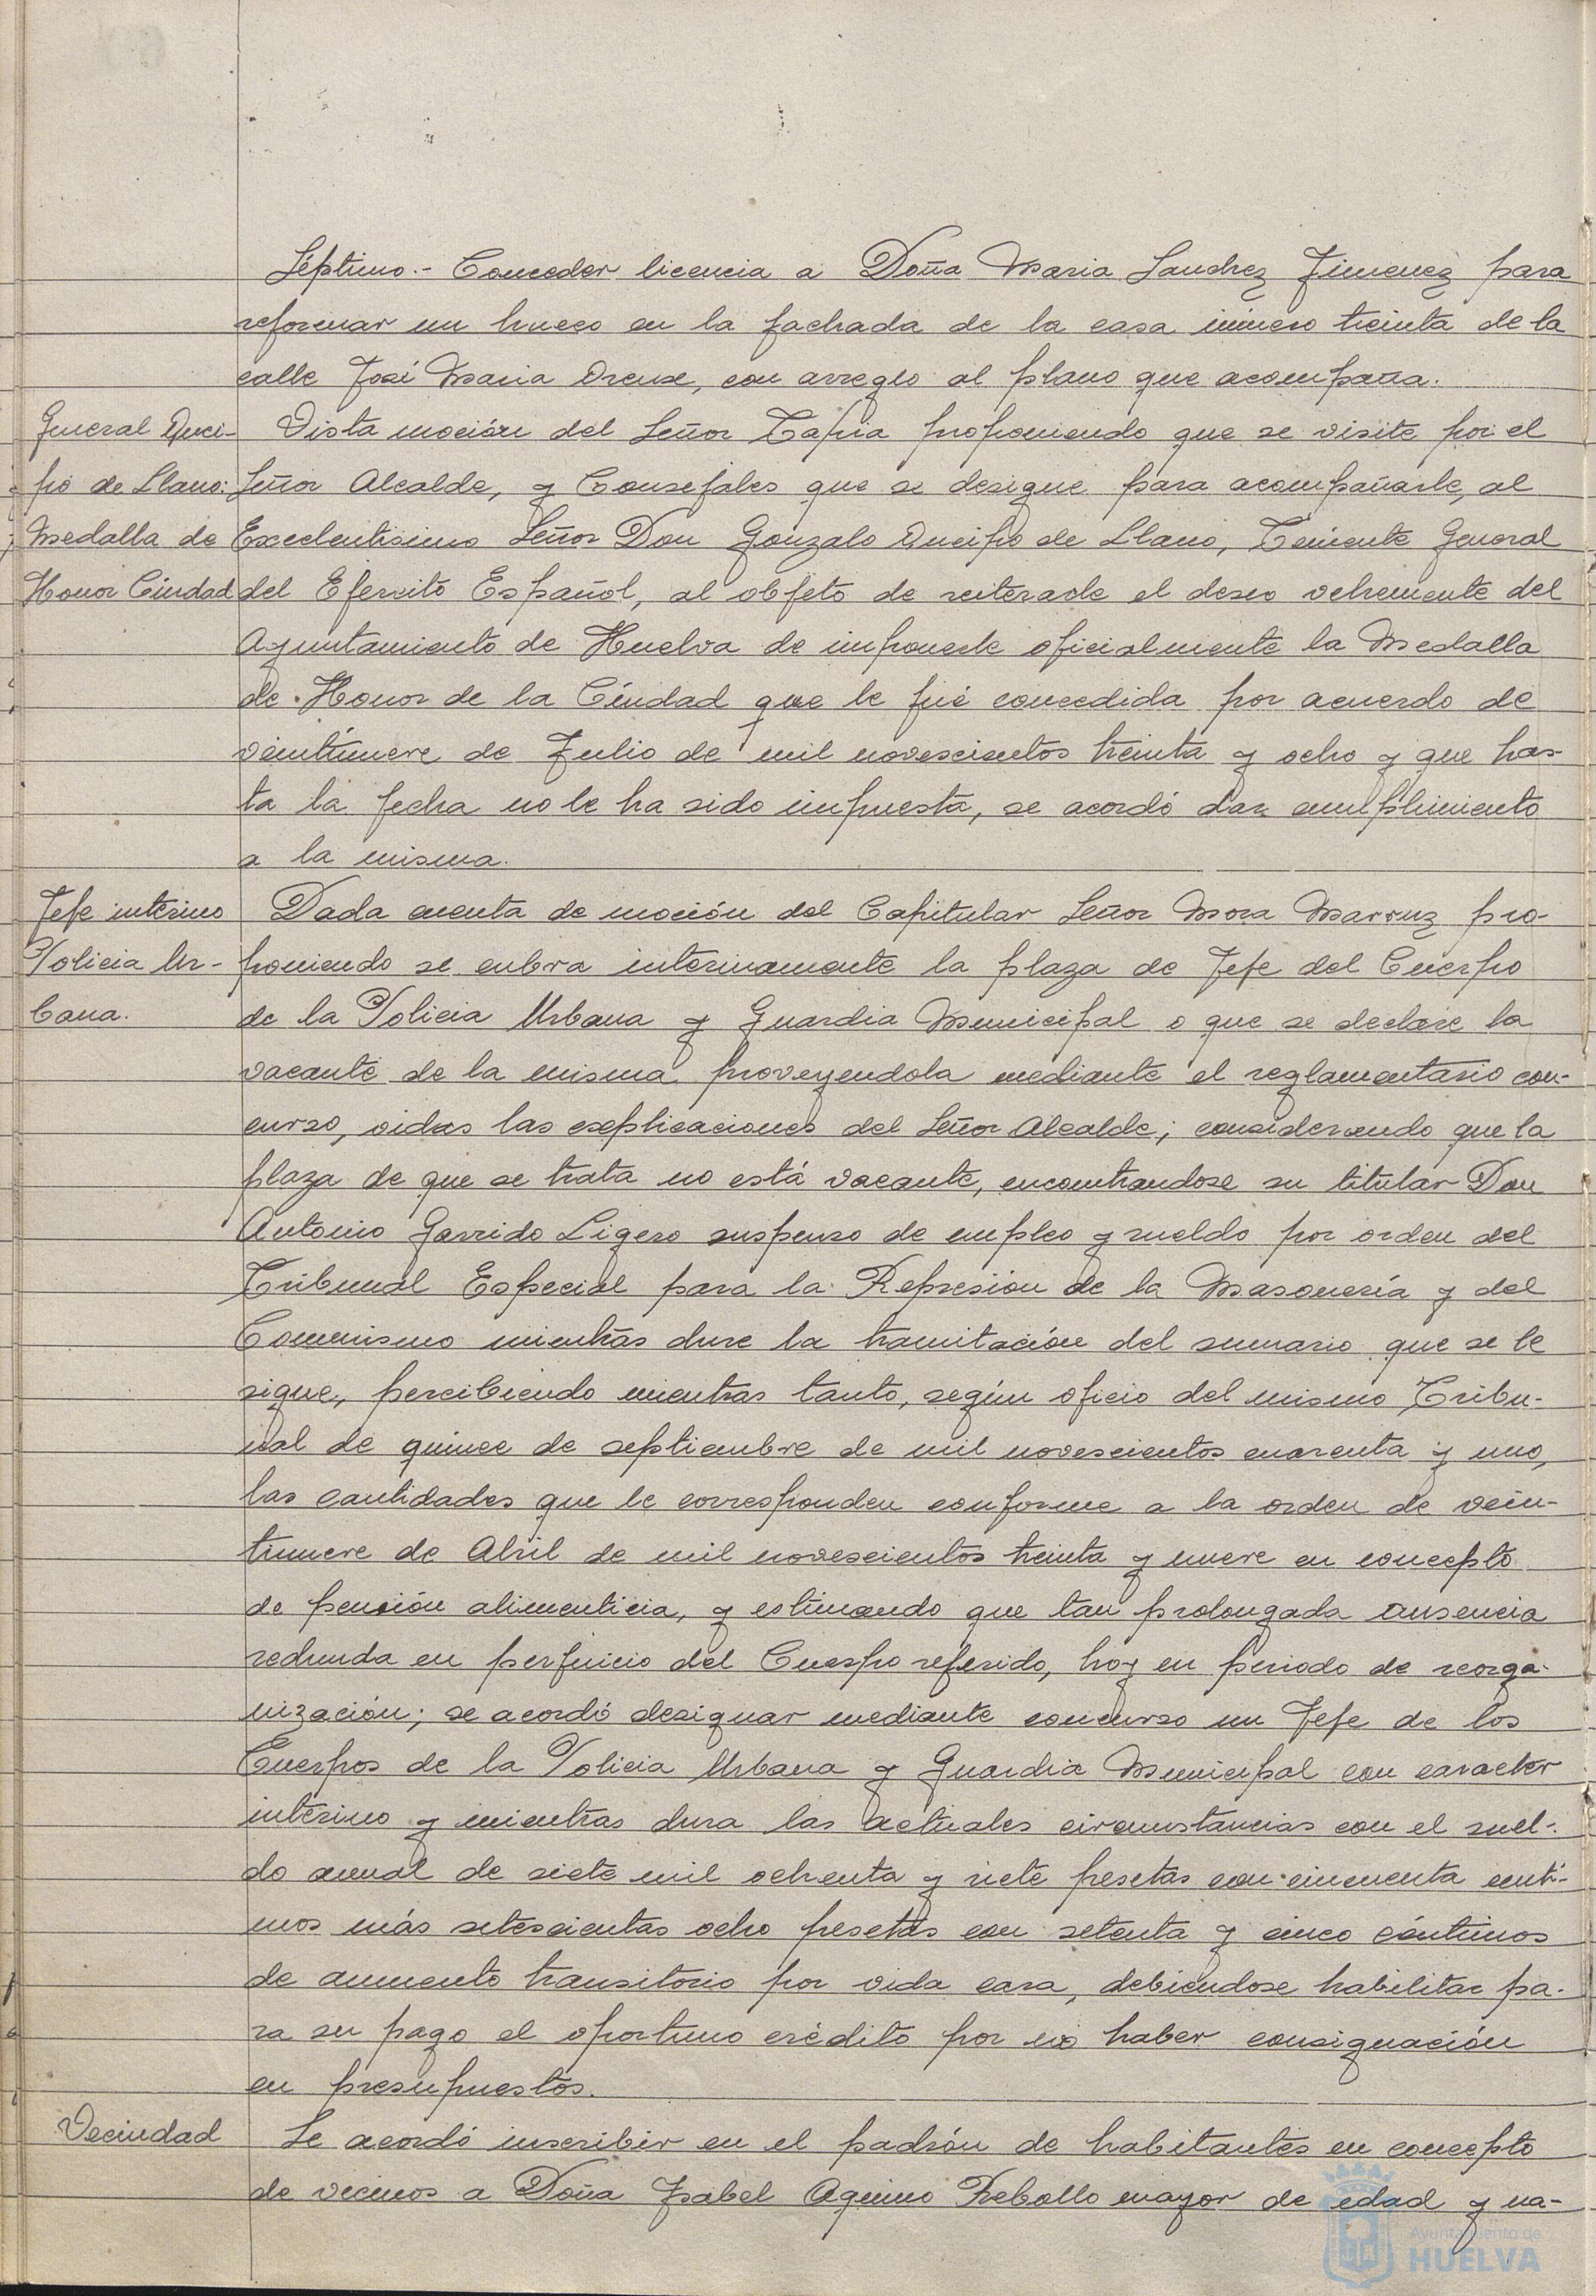 Séptimo.- Conceder licencia a Doña Maria Sanchez Jimenez para
reformar un hueco en la fachada de la casa número treinta de la
calle José Maria Orense, con arreglo al plano que acompaña.
General Quei-
po de Llano:
Medalla de
Honor Ciudad
Vista moción del Señor Tapia proponiendo que se visite por el
Señor Alcalde, y Consejales que se designe para acompañarle, al
Excelentisimo Señor Don Gonzalo Queipo de Llano, Teniente General
del Ejercito Español, al objeto de reiterarle el deseo vehemente del
Ayuntamiento de Huelva de imponerle oficialmente la Medalla
de Honor de la Ciudad que le fué concedida por acuerdo de
veintinueve de Julio de mil novescientos treinta y ocho y que has-
ta la fecha no le ha sido impuesta, se acordó dar cumplimiento
a la misma.
Jefe interino
Policia Ur-
bana.
Dada cuenta de moción del Capitular Señor Mora Marruz pro-
poniendo se cubra interinamente la plaza de Jefe del Cuerpo
de la Policia Urbana y Guardia Municipal o que se declare la
vacante de la misma proveyendola mediante el reglamentario con-
curso, oidas las explicaciones del Señor Alcalde; considerando que la
plaza de que se trata no está vacante, encontrandose su titular Don
Antonio Garrido Ligero suspenso de empleo y sueldo por orden del
Tribunal Especial para la Represión de la Masonería y del
Comunismo mientras dure la tramitación del sumario que se le
sigue, percibiendo mientras tanto, según oficio del mismo Tribu-
nal de quince de septiembre de mil novescientos cuarenta y uno,
las cantidades que le corresponden conforme a la orden de vein-
tinueve de Abril de mil novescientos treinta y nueve en concepto
de pensión alimenticia, y estimando que tan prolongada ausencia
redunda en perjuicio del Cuerpo referido, hoy en periodo de reorga-
nización; se acordó designar mediante concurso un Jefe de los
Cuerpos de la Policia Urbana y Guardia Municipal con caracter
interino y mientras dura las actuales circunstancias con el suel-
do anual de siete mil ochenta y siete pesetas con cincuenta centi-
mos más setescientas ocho pesetas con setenta y cinco céntimos
de aumento transitorio por vida cara, debiendose habilitar pa-
ra su pago el oportuno crédito por no haber consignación
en presupuestos.
Vecindad
Se acordó inscribir en el padrón de habitantes en concepto
de vecinos a Doña Isabel Aquino Rebollo mayor de edad y na-
Ayuntamiento de
HUELVA